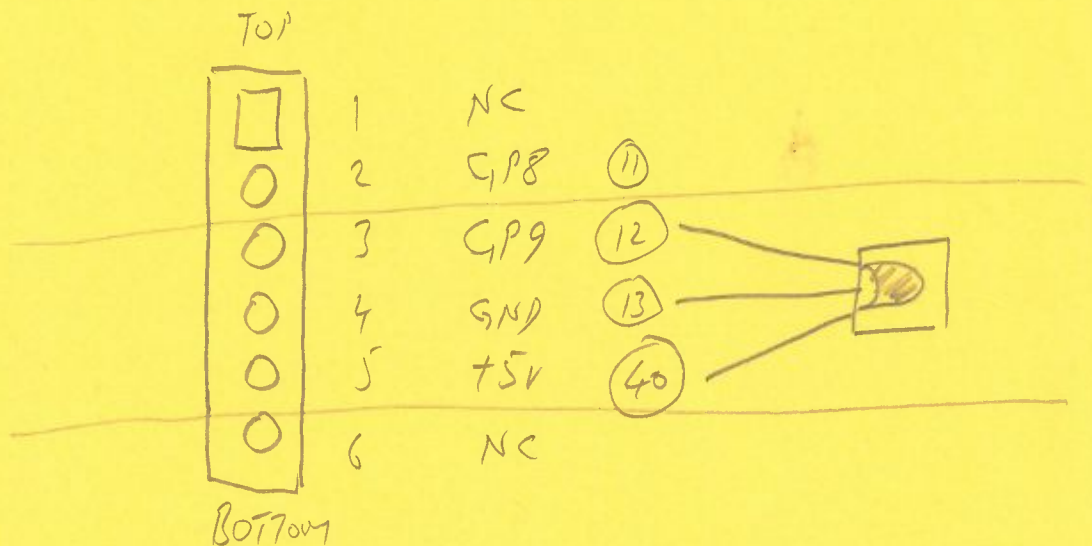 TOP
1 NC
2 GP8 11
3 GP9 12
4 GND 13
5 +5V 40
6 NC
BOTTOM